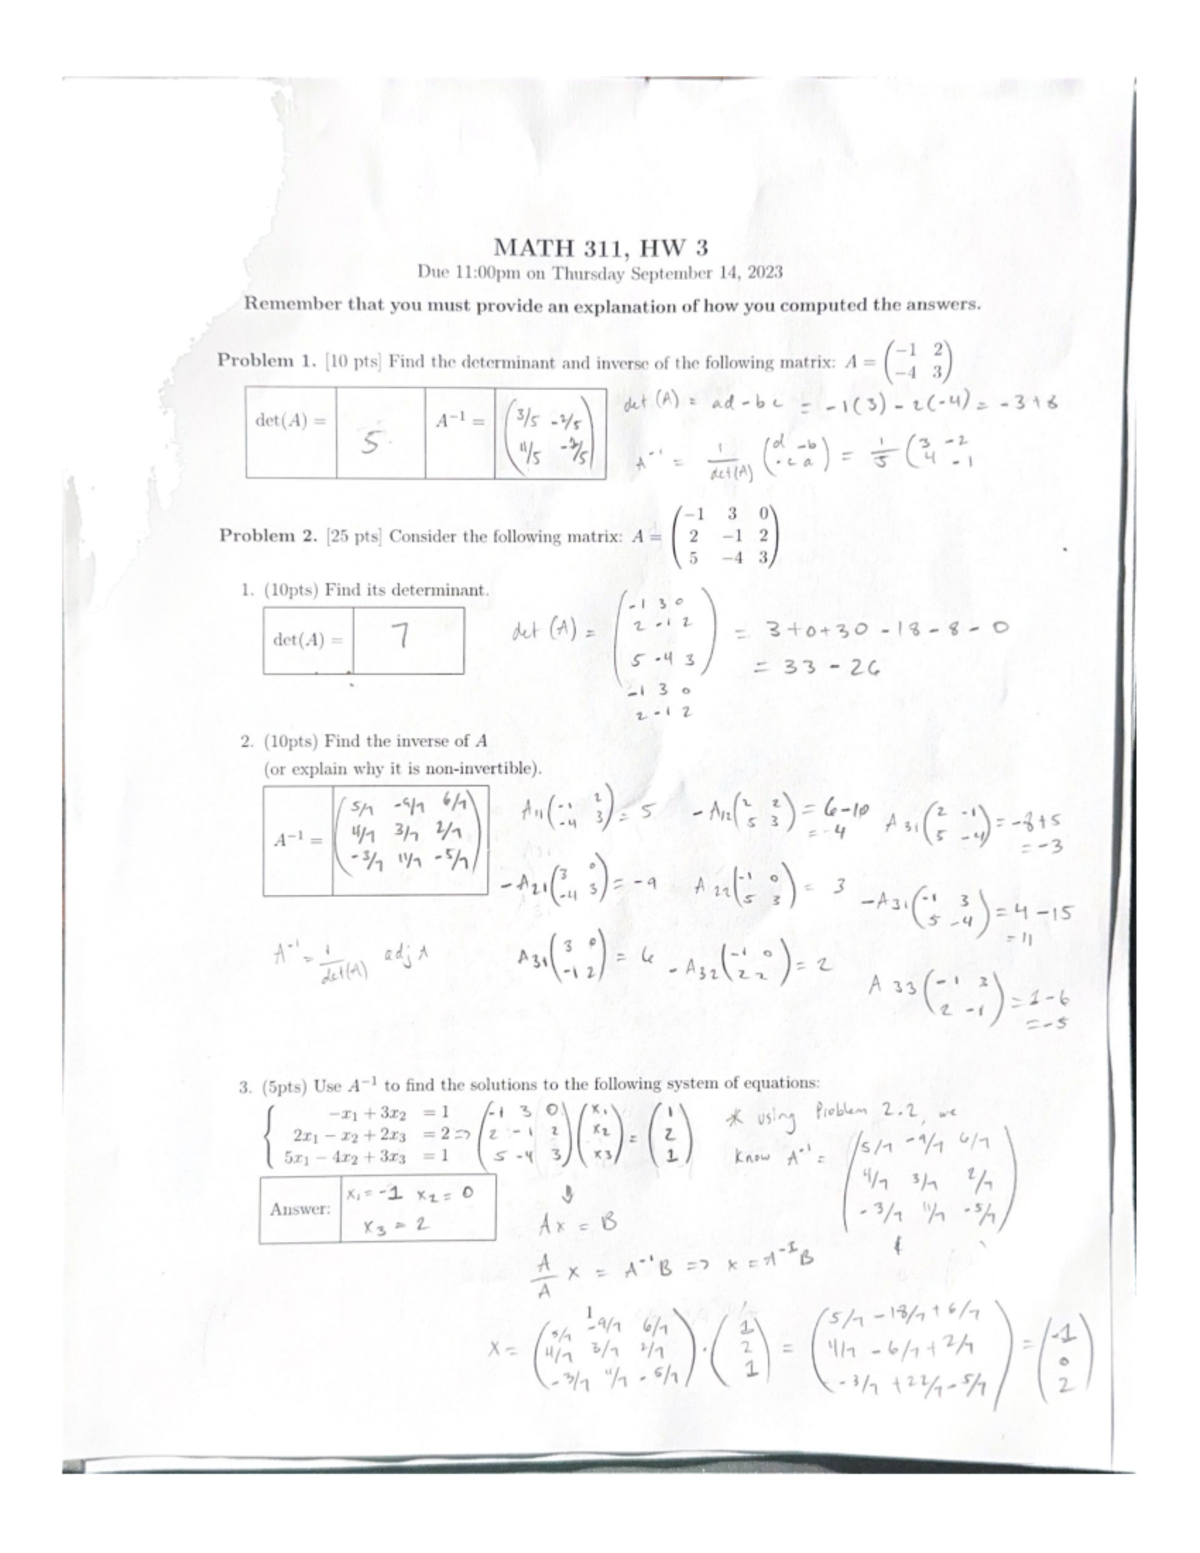 MATH 311, HW 3
Due 11:00pm on Thursday September 14, 2023
Remember that you must provide an explanation of how you computed the answers.
Problem 1. [10 pts] Find the determinant and inverse of the following matrix: A = (-1 2
-4 3)
det(A) = 5 A⁻¹ = (3/5 -2/5
det(A) = ad - bc = -1(3) - 2(-4) = -3+8
A⁻¹ = 1/det(A) (d -b
-c a) = 1/5 (3 -2
4 -1
Problem 2. [25 pts] Consider the following matrix: A = (-1 3 0
2 -1 2
5 -4 3)
1. (10pts) Find its determinant.
det(A) = 7
det(A) = (-1 3 0
2 -1 2
5 -4 3)
-1 3 0
2 -1 2
= 3+0+30-18-8-0
= 33 - 26
2. (10pts) Find the inverse of A
(or explain why it is non-invertible).
A⁻¹ = (5/7 -9/7 6/7
4/7 3/7 2/7
-3/7 11/7 -5/7)
A11(-1 2
-4 3) = 5
-A12(2 2
5 3) = 6-10
= -4
A31(2 -1
5 -4) = -8+5
= -3
-A21(3 0
-4 3) = -9
A22(-1 0
5 3) = 3
-A31(-1 3
5 -4) = 4-15
= 11
A⁻¹ = 1/det(A) adj A
A31(3 0
-1 2) = 6
-A32(-1 0
2 2) = 2
A33(-1 3
2 -1) = 1-6
= -5
3. (5pts) Use A⁻¹ to find the solutions to the following system of equations:
-x₁ + 3x₂ = 1
2x₁ - x₂ + 2x₃ = 2
5x₁ - 4x₂ + 3x₃ = 1
⇒ (-1 3 0
2 -1 2
5 -4 3) (x₁
x₂
x₃) = (1
2
1)
* using Problem 2.2, we
know A⁻¹ = (5/7 -9/7 6/7
4/7 3/7 2/7
-3/7 11/7 -5/7)
Answer: x₁ = -1 x₂ = 0
x₃ = 2
⇓
Ax = B
A/A x = A⁻¹B ⇒ x = A⁻¹B
x = (5/7 -9/7 6/7
4/7 3/7 2/7
-3/7 11/7 -5/7) · (1
2
1) = (5/7 - 18/7 + 6/7
4/7 - 6/7 + 2/7
-3/7 + 22/7 - 5/7) = (-1
0
2)